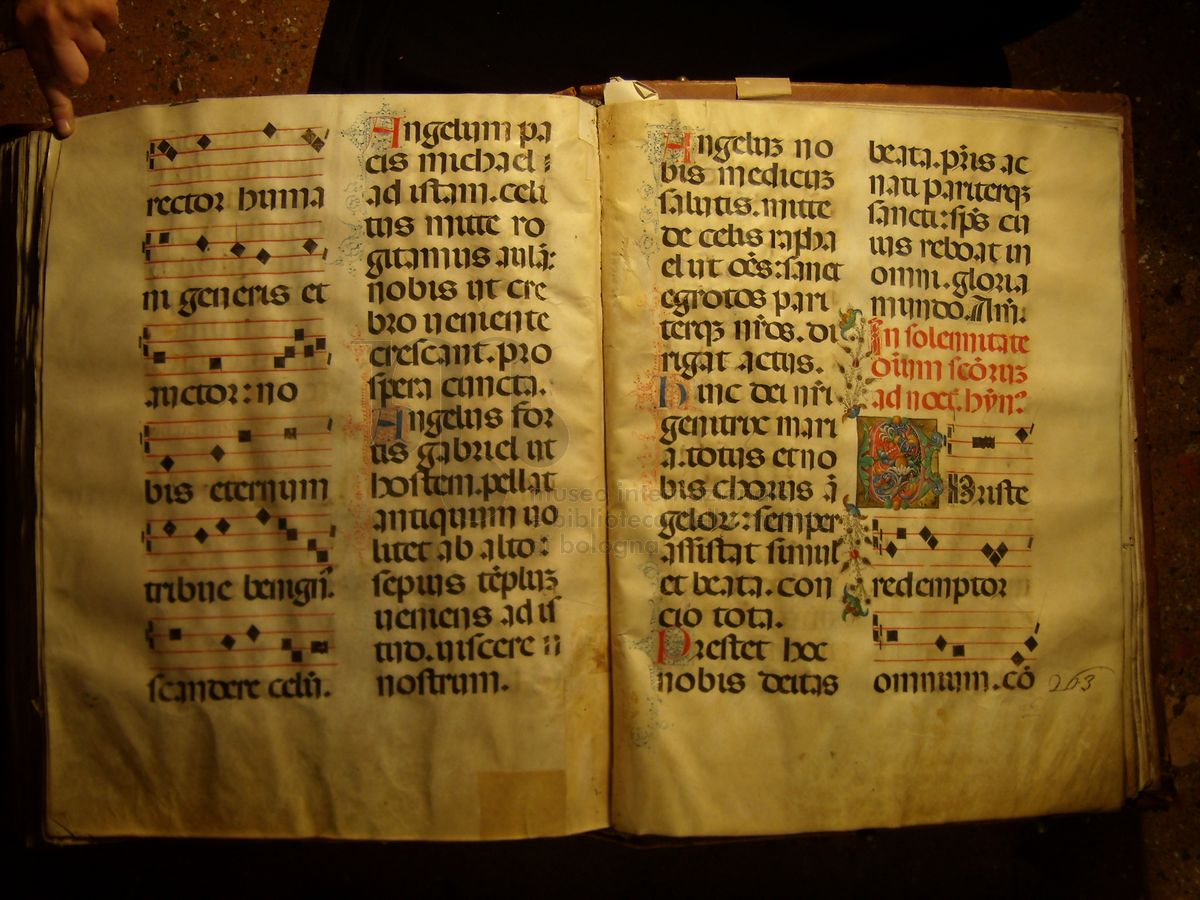 rector huma
ni generis et
auctor: no
bis eternum
tribue benign̄.
scandere celū.
Angelum pa
cis michael :
ad istam. celi
tus mitte ro
gitamus aulā:
nobis ut cre
bro ueniente
crescant. pro
spera cuncta.
Angelus for
tis gabriel ut
hostem. pellat
antiquum uo
litet ab alto:
sepius tēpluꝫ
ueniens ad is
tud. uiscere
nostrum.
Angeluꝫ no
bis medicuꝫ
salutis. mitte
de celis rapha
el ut oēs: sanet
egrotos pari
terqꝫ nr̄os. di
rigat actus.
Hinc dei nr̄i
genitrix mari
a. totus et no
bis chorus ā
gelor: semper
assistat simul
et beata. con
cio tota.
Prestet hoc
nobis deitas
beata. pr̄is ac
nati pariterqꝫ
sancti: sp̄s cu
ius reboat in
omni. gloria
mundo. Am̄.
In solemnitate
oīum scōruꝫ
ad noct. hyn̄.
Christe
redemptor
omnium. cō
263
museo inte
biblioteca
bologna